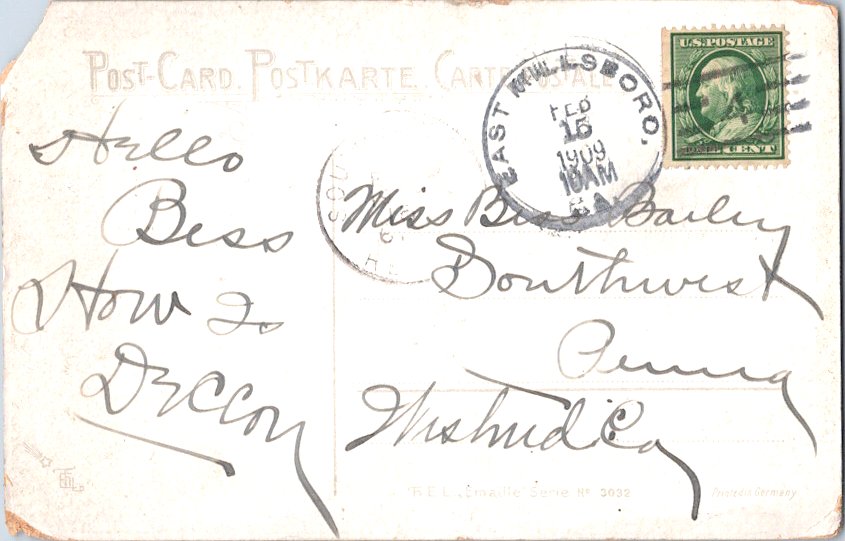 POST-CARD. POSTKARTE. CARTE POSTALE
U.S. POSTAGE
EAST MILLSBORO,
FEB
15
1909
10AM
PA.
SOU
Hello
Bess
How Is
Deccoy
Miss Bess Bailey
Southwest
Penna
Wstmd Co
Serie No 3032
Printed in Germany